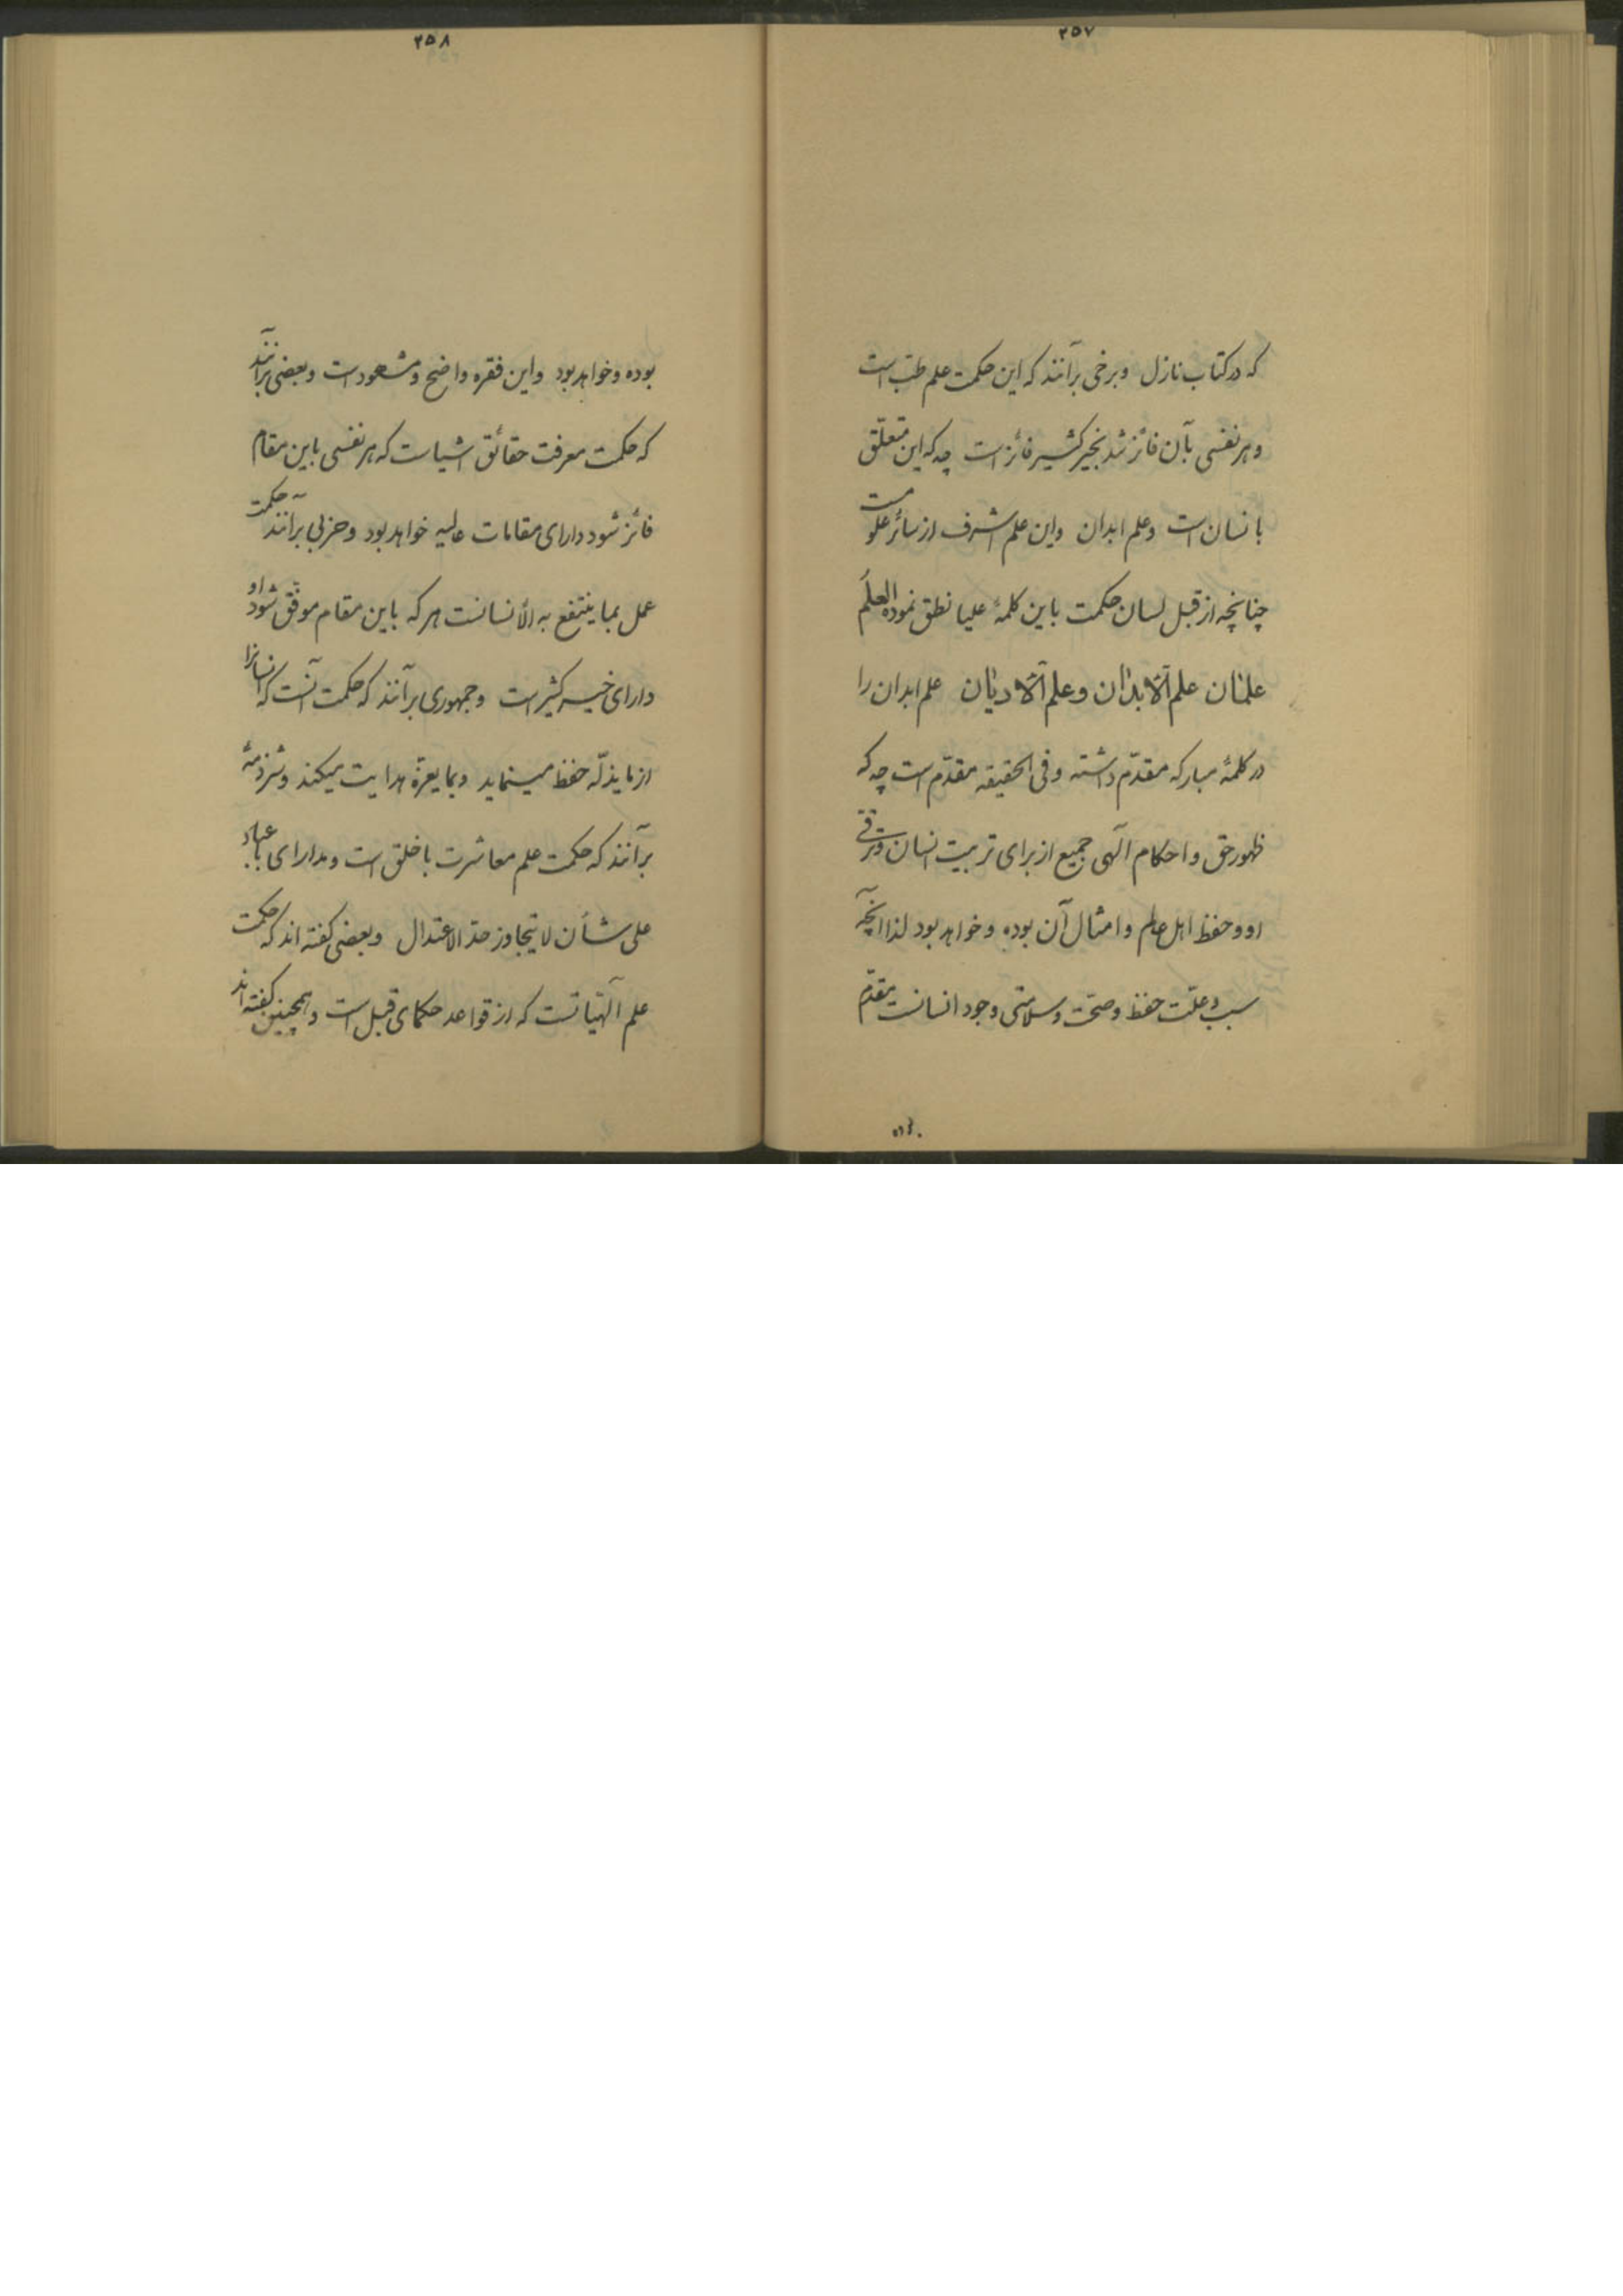 ٢٥٧
که در کتاب نازل و برخی برآنند که این حکمت علم طب است
و هر نفسی بآن فائز شد بخیر کثیر فائز است چه که این متعلّق
بانسان است و علم ابدان و این علم اشرف از سائر علومست
چنانچه از قبل لسان حکمت باین کلمهٔ علیا نطق نموده العلم
علمان علم الابدان و علم الادیان علم ابدان را
در کلمهٔ مبارکه مقدّم داشته و فی الحقیقه مقدّم است چه که
ظهور حق و احکام الهی جمیع از برای تربیت انسان و ترقی
او و حفظ اهل عالم و امثال آن بوده و خواهد بود لذا آنچه
سبب و علّت حفظ و صحّت و سلامتی وجود انسانست مقدّم
٢٥٨
بوده و خواهد بود و این فقره واضح و مشهود است و بعضی برآنند
که حکمت معرفت حقائق اشیاست که هر نفسی باین مقام
فائز شود دارای مقامات عالیه خواهد بود و حزبی برآنند حکمت
عمل بما ینتفع به الأنسانست هر که باین مقام موفّق شود او
دارای خیر کثیر است و جمهوری برآنند که حکمت آنست که انسانرا
از ما یذلّه حفظ مینماید و بما یعزّه هدایت میکند و شرذمهٔ
برآنند که حکمت علم معاشرت با خلق است و مدارای با عباد
علی شأن لا یتجاوز حدّ الاعتدال و بعضی گفته‌اند که حکمت
علم الهیّاتست که از قواعد حکمای قبل است و همچنین گفته‌اند